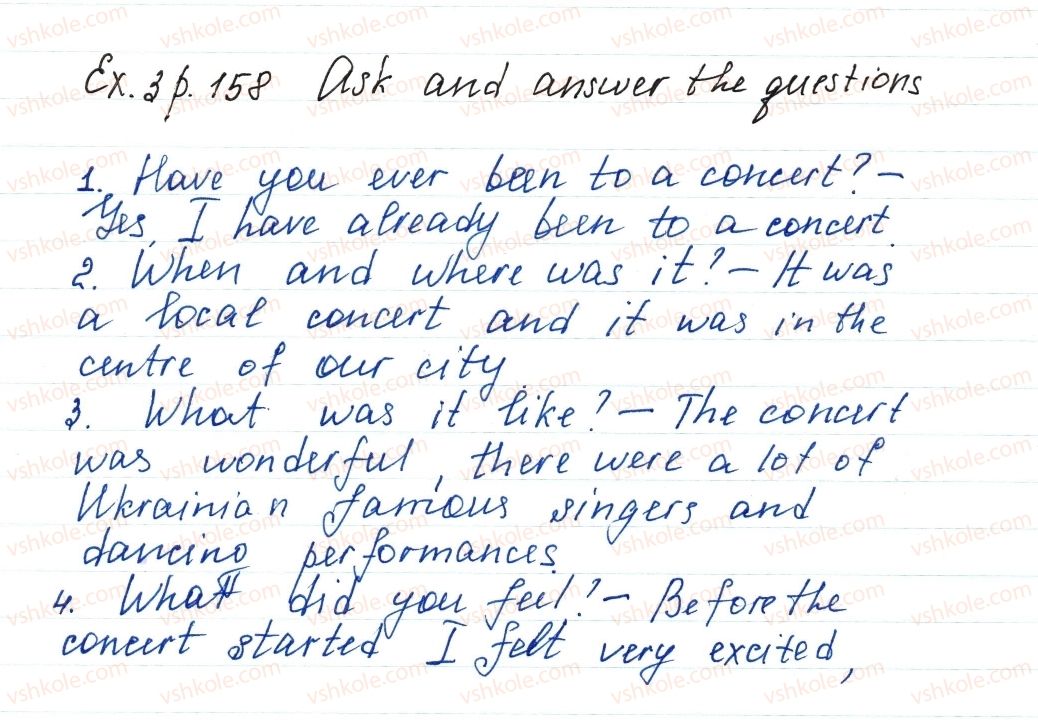 Ex. 3 p. 158 Ask and answer the questions
1. Have you ever been to a concert? –
Yes, I have already been to a concert.
2. When and where was it? – It was
a local concert and it was in the
centre of our city.
3. What was it like? – The concert
was wonderful, there were a lot of
Ukrainian famous singers and
dancing performances.
4. What did you feel? – Before the
concert started I felt very excited,